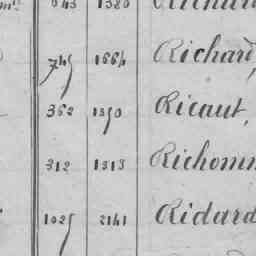 643 1380 Richard
745 1664 Richard,
362 1350 Ricaut,
312 1313 Richomm
1025 2141 Ridard